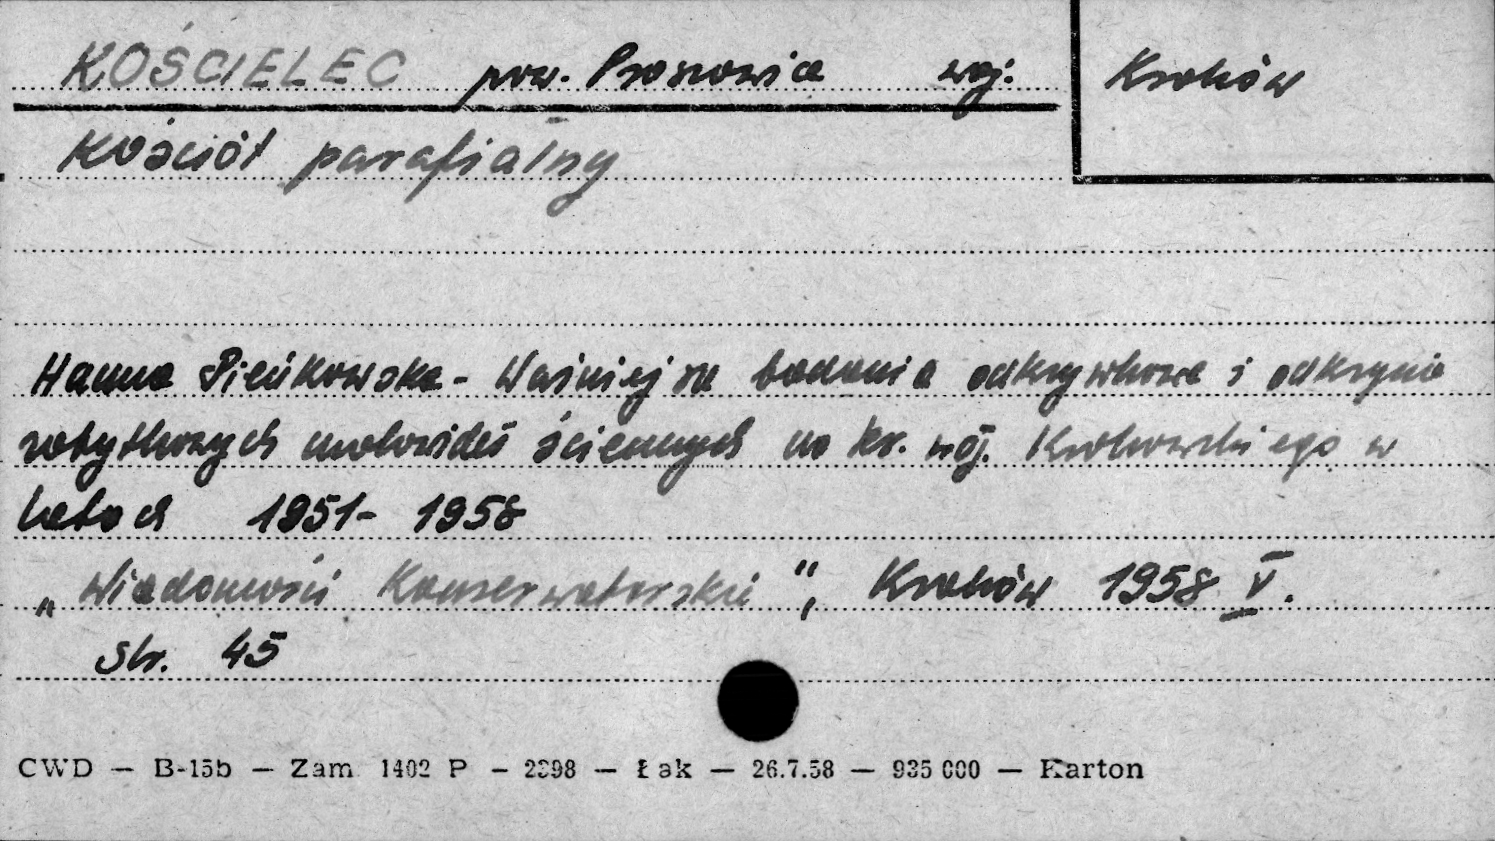 KOŚCIELEC pow. Proszowice woj. Kraków
Kościół parafialny
Hanna Pieńkowska - Ważniejsze badania odkrywkowe i odkrycia
zabytkowych malowideł ściennych na ter. woj. Krakowskiego w
latach 1951- 1958
„Wiadomości Konserwatorskie", Kraków 1958 V.
Str. 45
CWD — B-15b — Zam 1402 P — 2398 — Łak — 26.7.58 — 935 000 — Karton